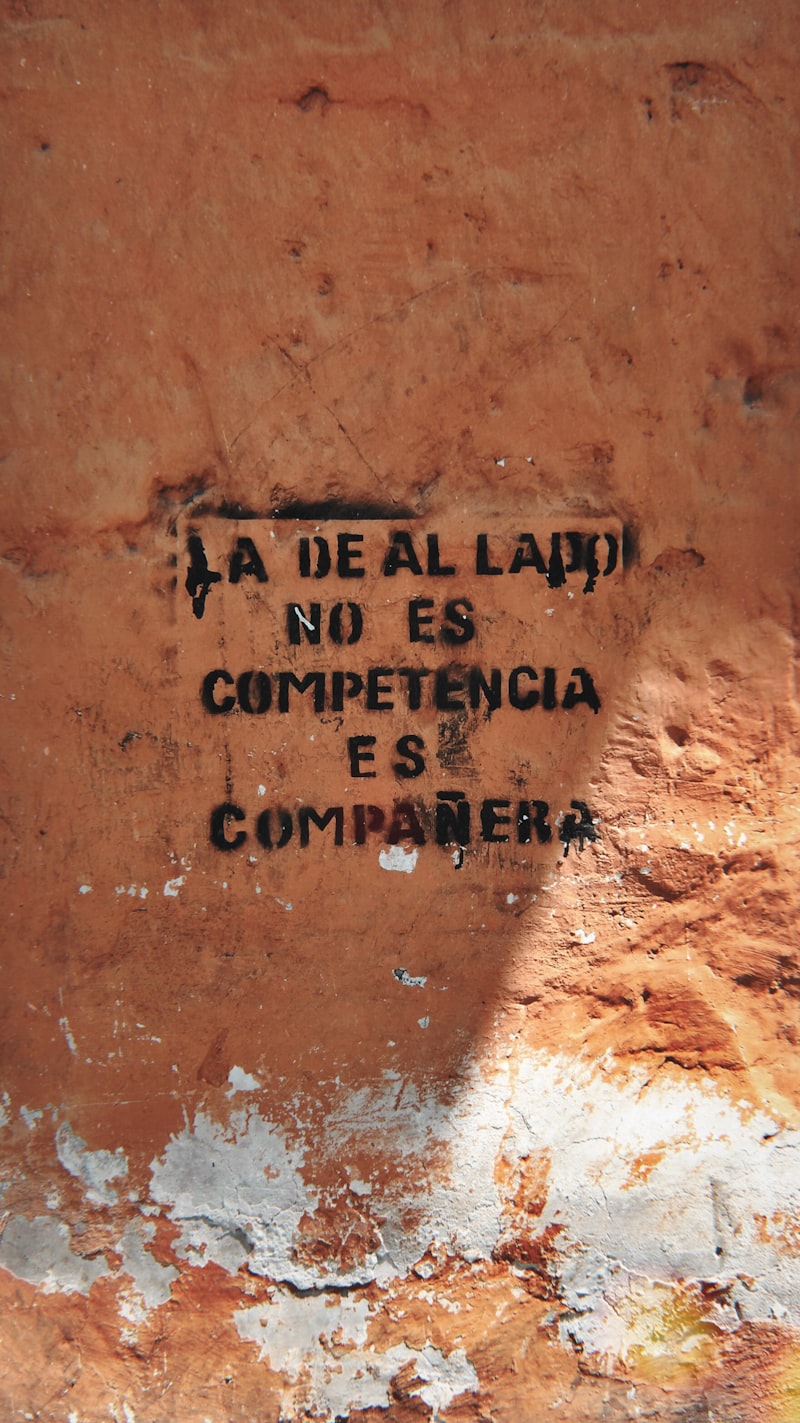 LA DE AL LADO
NO ES
COMPETENCIA
ES
COMPAÑERA